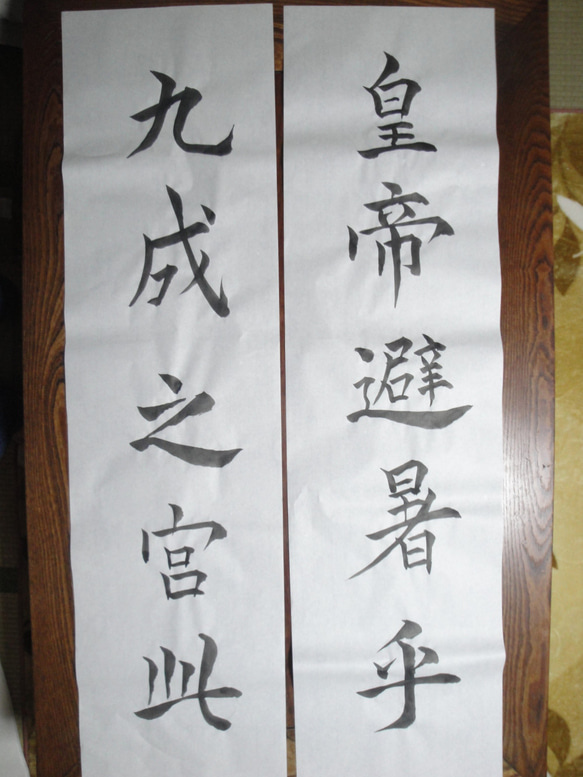 皇帝避暑乎
九成之宮此